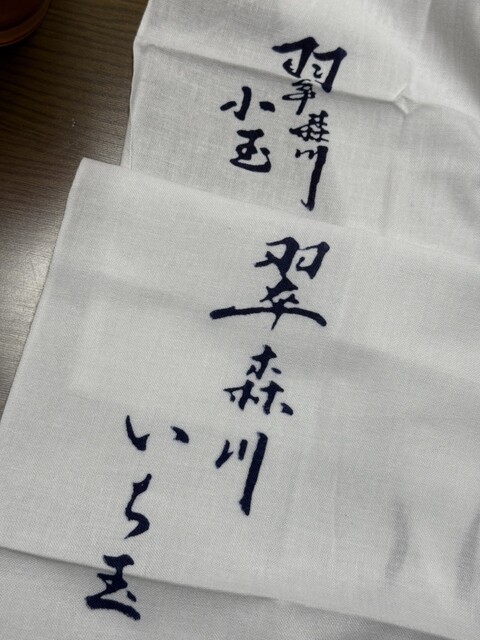 翠森川
小玉
翠森川
いち玉